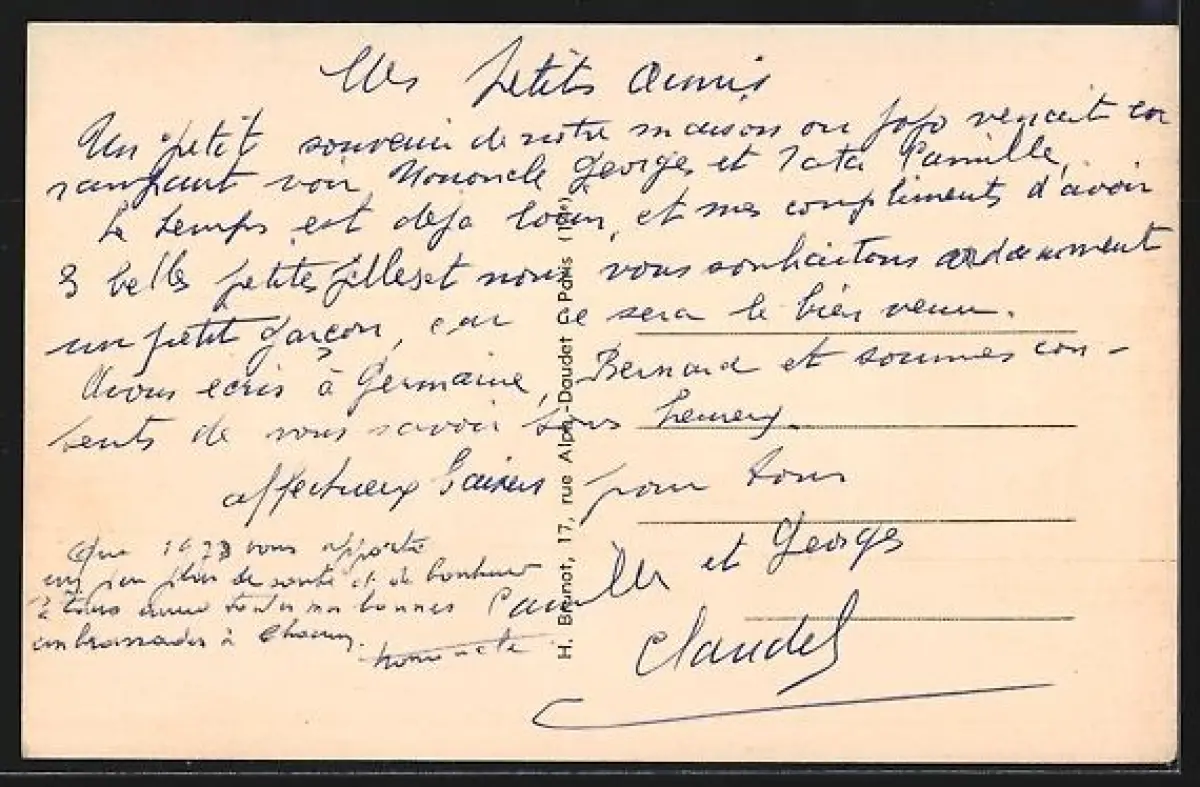 Mes petits Amis
Un petit souvenir de notre maison ou Jojo venait en
rampant voir Mononcle Georges et Tata Camille,
Le temps est deja loin, et mes compliments d'avoir
3 belles petites filles et nous vous souhaitons ardemment
un petit garçon, car ce sera le bien venu.
Avons ecris à Germaine, Bernard et sommes con-
tents de vous savoir tous heureux.
affectueux baisers pour tous
Camille et Georges
Claudel
Que 1973 vous apporte
un peu plus de santé et de bonheur
à tous avec toutes mes bonnes
embrassades à Chacun.
H. Brunot, 17, rue Alph.-Daudet Paris